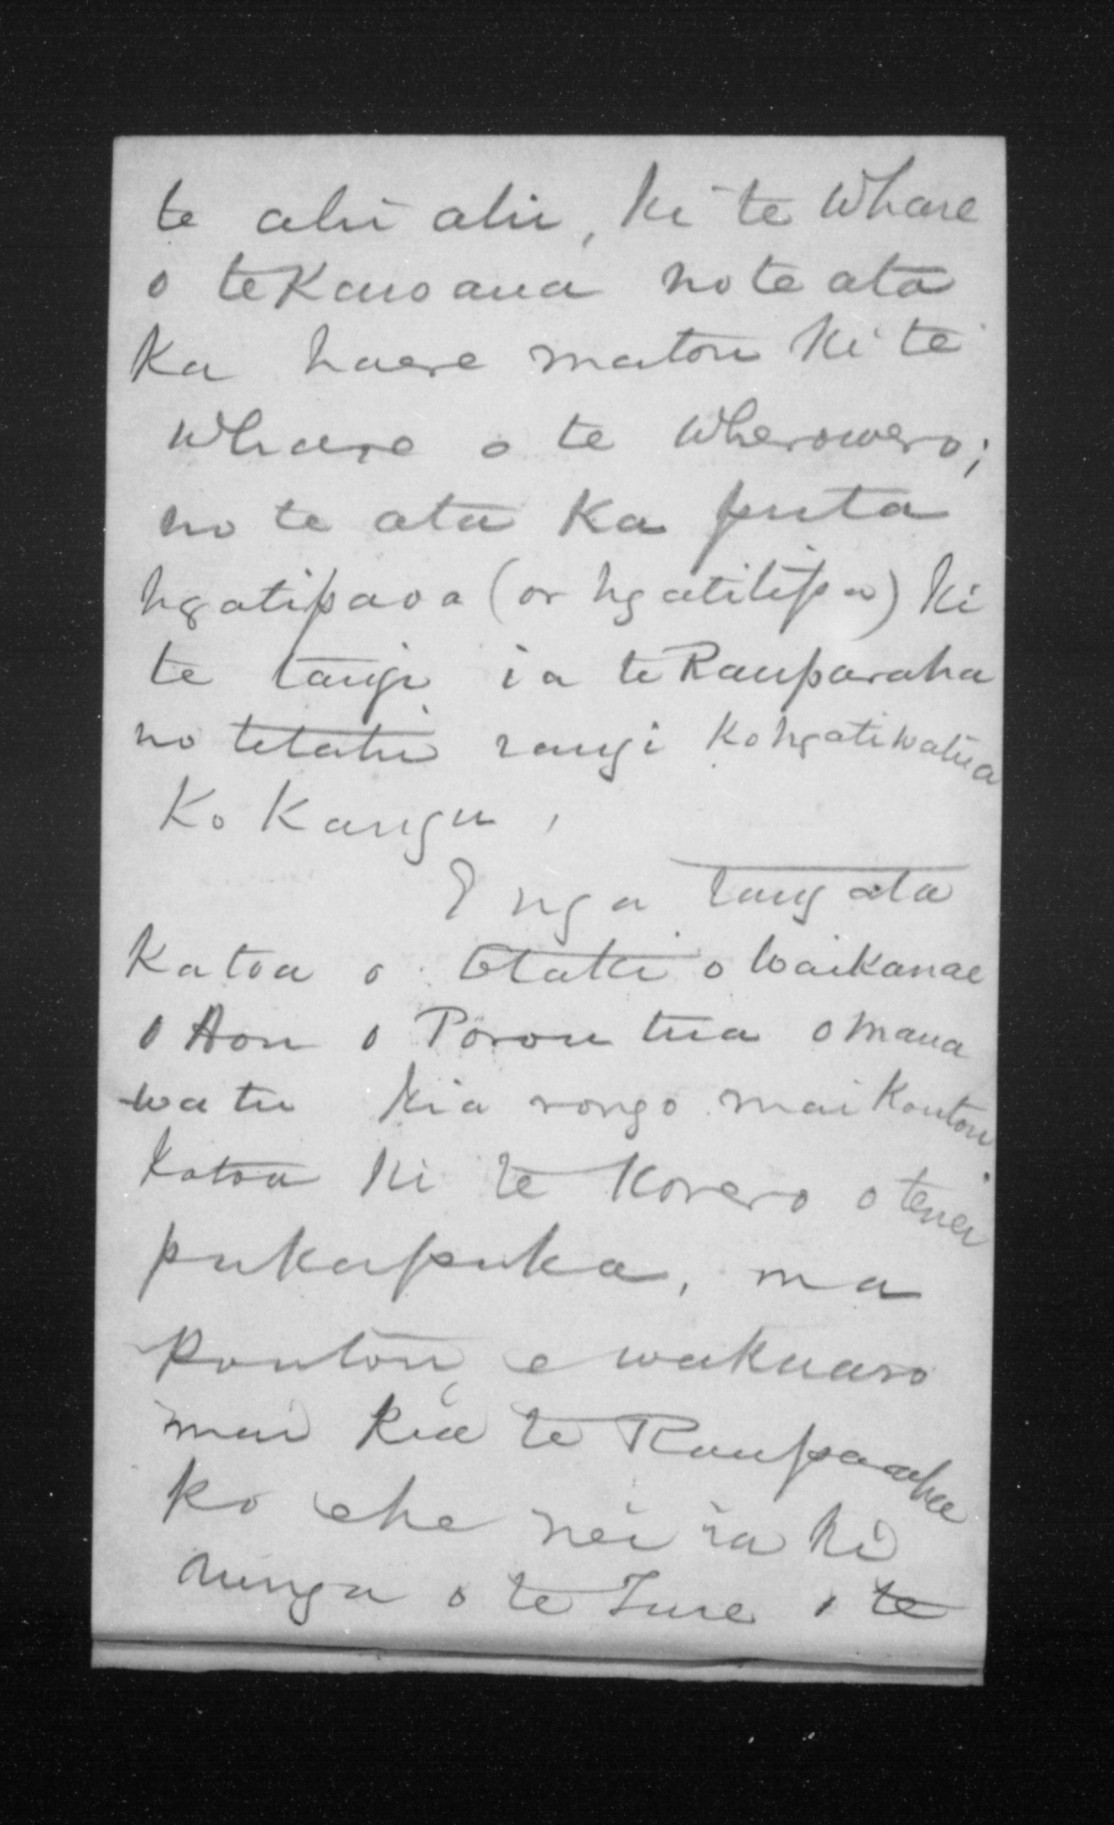 te ahi ahi, ki te Whare
o te Kawana no te ata
Ka haere matou ki te
Whare o te Wherowero;
no te ata Ka puta
ngatipaoa (or ngatitipa) ki
te tangi ia te Rauparaha
no tetahi rangi Ko ngatiwatua
Ko Kangu,
E nga tangata
Katoa o Otaki o Waikanae
o Hou o Porou tua o Mana
watu Kia rongo mai Koutou
Katoa ki te Korero o tenei
pukapuka, ma
Koutou e wakaaro
mai Kia te Rauparaha
Ko ehe nei ia ki
runga o te Ture o te